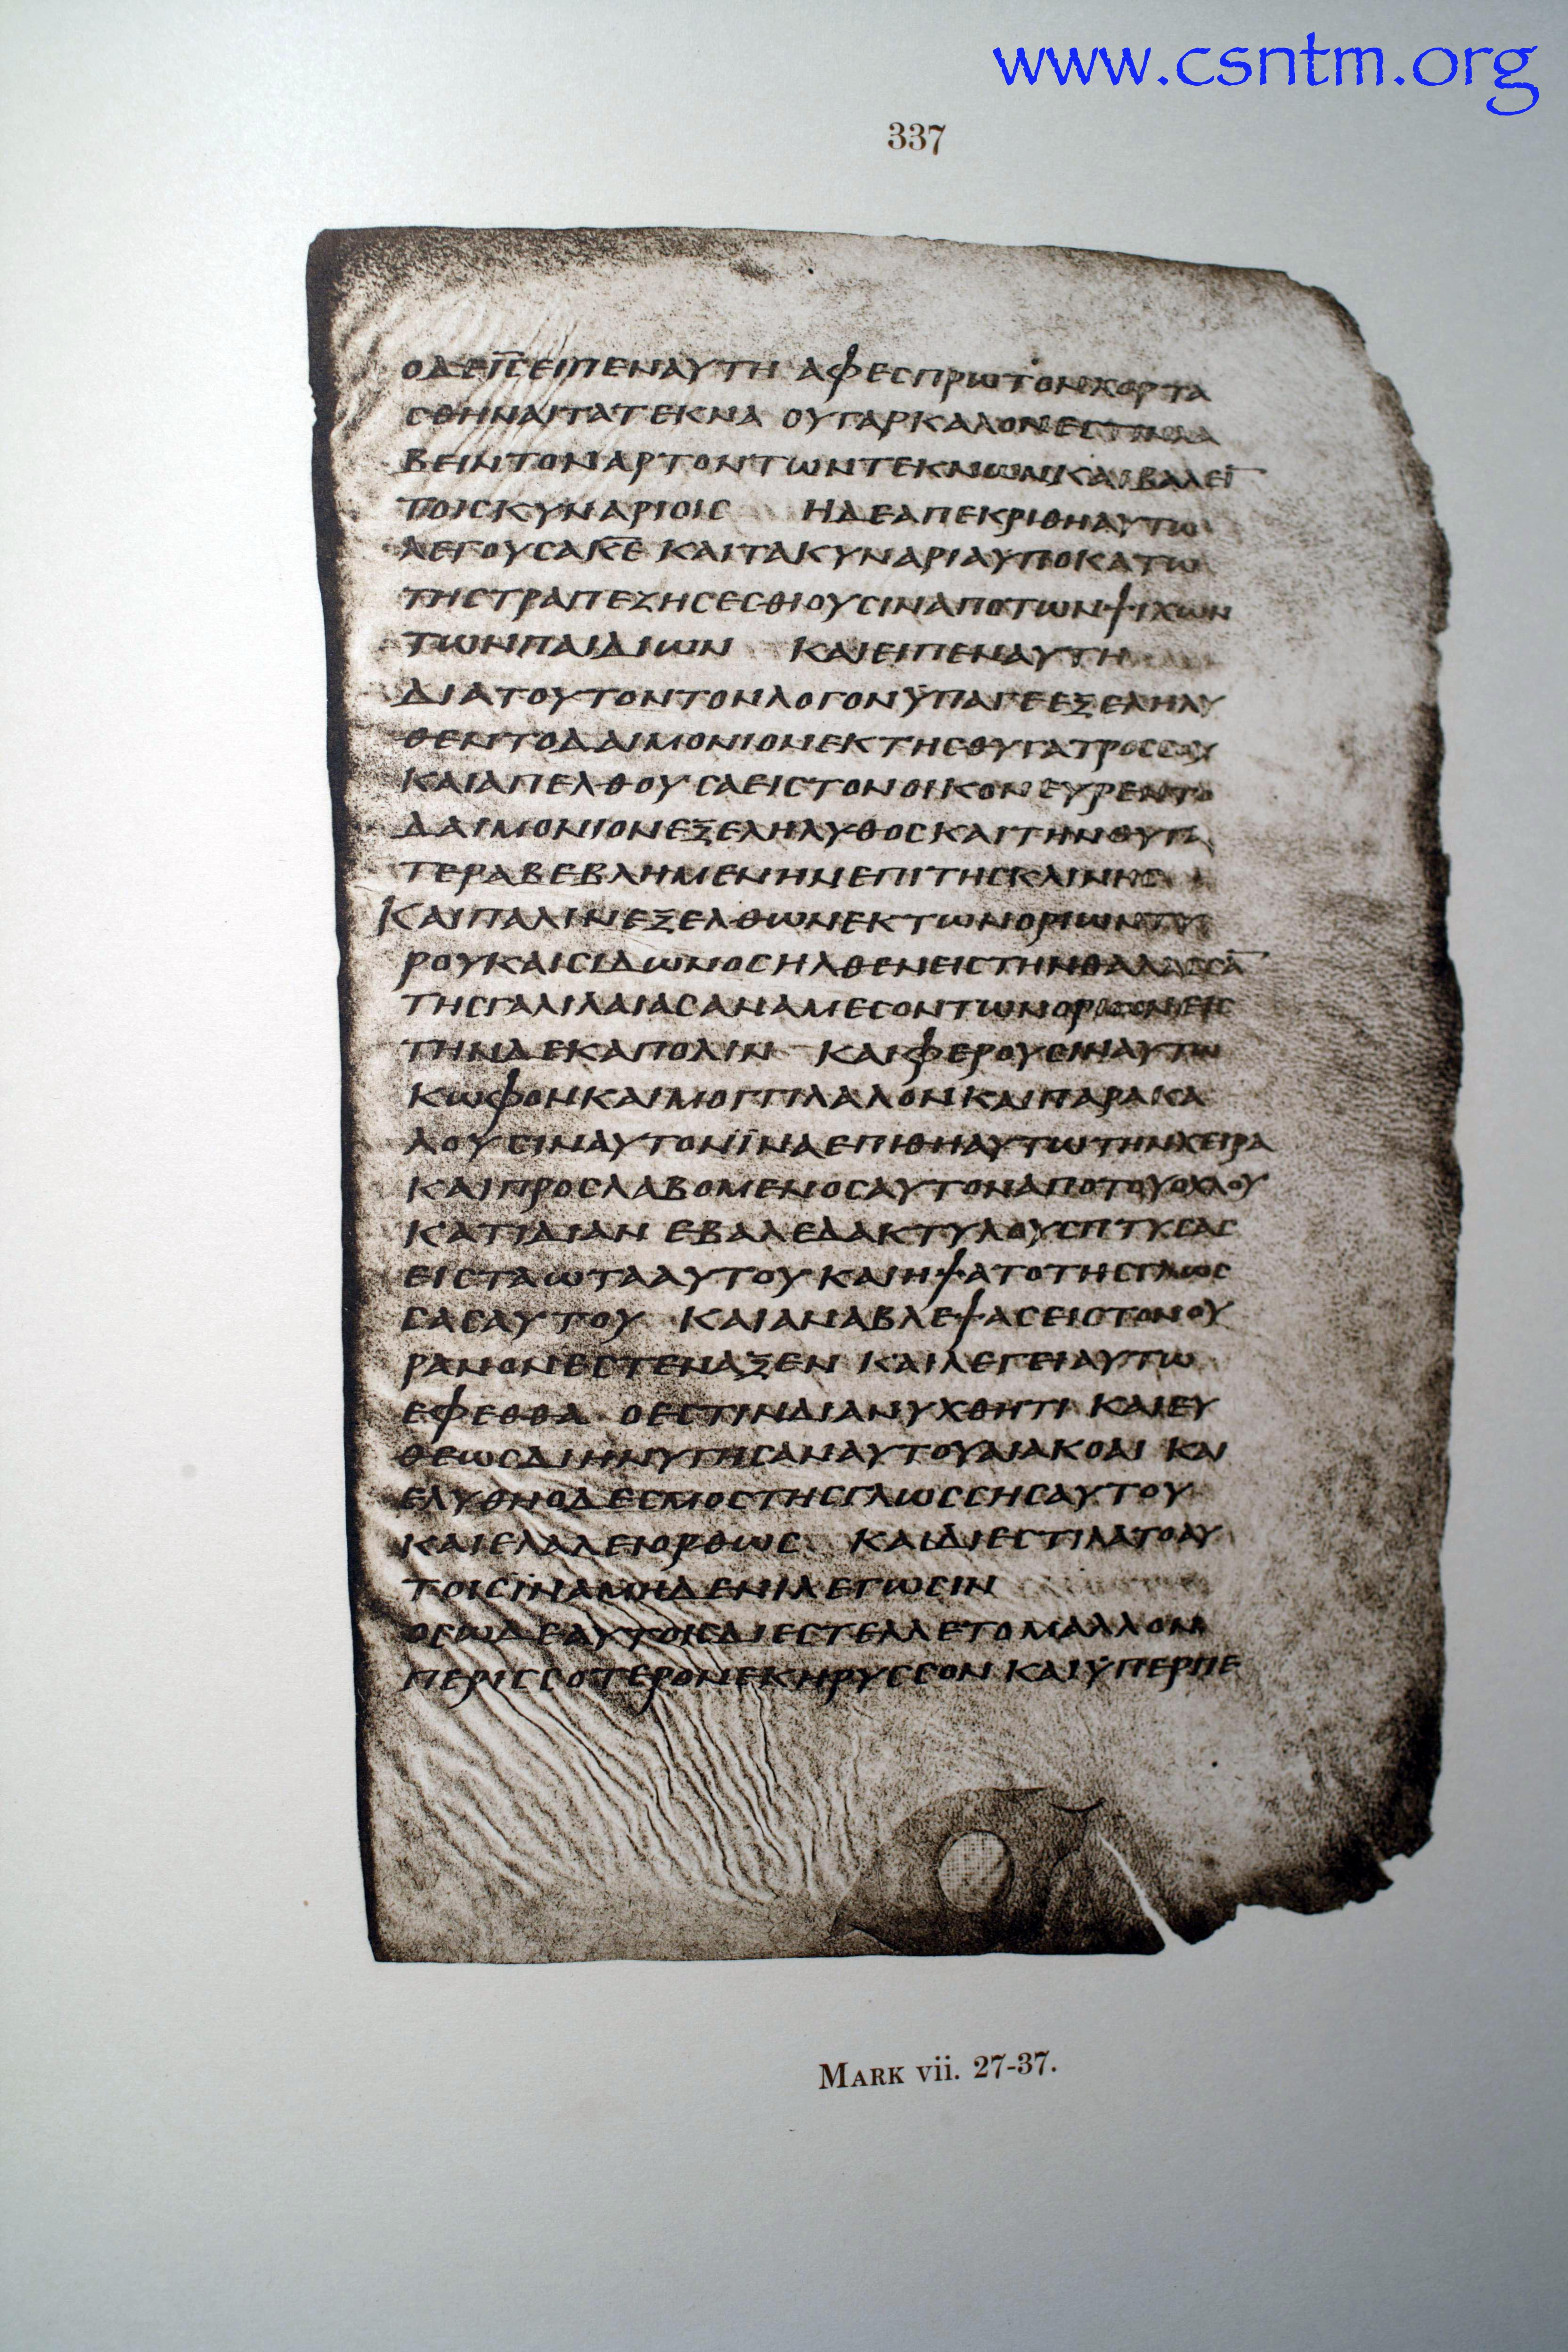 www.csntm.org
337
ΟΔΕΙ̅Σ̅ΕΙΠΕΝΑΥΤΗ ΑΦΕΣΠΡΩΤΟΝΧΟΡΤΑ
ΣΘΗΝΑΙΤΑΤΕΚΝΑ ΟΥΓΑΡΚΑΛΟΝΕΣΤΙΝΛΑ
ΒΕΙΝΤΟΝΑΡΤΟΝΤΩΝΤΕΚΝΩΝΚΑΙΒΑΛΕΙ̅
ΤΟΙΣΚΥΝΑΡΙΟΙΣ ΗΔΕΑΠΕΚΡΙΘΗΑΥΤΩ
ΛΕΓΟΥΣΑΚ̅Ε̅ ΚΑΙΤΑΚΥΝΑΡΙΑΥΠΟΚΑΤΩ
ΤΗΣΤΡΑΠΕΖΗΣΕΣΘΙΟΥΣΙΝΑΠΟΤΩΝΨΙΧΩΝ
ΤΩΝΠΑΙΔΙΩΝ ΚΑΙΕΙΠΕΝΑΥΤΗ
ΔΙΑΤΟΥΤΟΝΤΟΝΛΟΓΟΝΫΠΑΓΕΕΞΕΛΗΛΥ
ΘΕΝΤΟΔΑΙΜΟΝΙΟΝΕΚΤΗΣΘΥΓΑΤΡΟΣΣΟΥ
ΚΑΙΑΠΕΛΘΟΥΣΑΕΙΣΤΟΝΟΙΚΟΝΕΥΡΕΝΤΟ
ΔΑΙΜΟΝΙΟΝΕΞΕΛΗΛΥΘΟΣΚΑΙΤΗΝΘΥΓΑ
ΤΕΡΑΒΕΒΛΗΜΕΝΗΝΕΠΙΤΗΣΚΛΙΝΗΣ
ΚΑΙΠΑΛΙΝΕΞΕΛΘΩΝΕΚΤΩΝΟΡΙΩΝΤΥ
ΡΟΥΚΑΙΣΙΔΩΝΟΣΗΛΘΕΝΕΙΣΤΗΝΘΑΛΑΣΣΑ̅
ΤΗΣΓΑΛΙΛΑΙΑΣΑΝΑΜΕΣΟΝΤΩΝΟΡΙΩΝΕΙΣ
ΤΗΝΔΕΚΑΠΟΛΙΝ ΚΑΙΦΕΡΟΥΣΙΝΑΥΤΩ
ΚΩΦΟΝΚΑΙΜΟΓΓΙΛΑΛΟΝΚΑΙΠΑΡΑΚΑ
ΛΟΥΣΙΝΑΥΤΟΝΪΝΑΕΠΙΘΗΑΥΤΩΤΗΝΧΕΙΡΑ
ΚΑΙΠΡΟΣΛΑΒΟΜΕΝΟΣΑΥΤΟΝΑΠΟΤΟΥΟΧΛΟΥ
ΚΑΤΙΔΙΑΝ ΕΒΑΛΕΔΑΚΤΥΛΟΥΣΠΤΥΣΑΣ
ΕΙΣΤΑΩΤΑΑΥΤΟΥΚΑΙΗΨΑΤΟΤΗΣΓΛΩΣ
ΣΑΣΑΥΤΟΥ ΚΑΙΑΝΑΒΛΕΨΑΣΕΙΣΤΟΝΟΥ
ΡΑΝΟΝΕΣΤΕΝΑΞΕΝ ΚΑΙΛΕΓΕΙΑΥΤΩ
ΕΦΕΘΘΑ ΟΕΣΤΙΝΔΙΑΝΥΧΘΗΤΙ ΚΑΙΕΥ
ΘΕΩΣΔΙΗΝΥΓΗΣΑΝΑΥΤΟΥΑΙΑΚΟΑΙ ΚΑΙ
ΕΛΥΘΗΟΔΕΣΜΟΣΤΗΣΓΛΩΣΣΗΣΑΥΤΟΥ
ΚΑΙΕΛΑΛΕΙΟΡΘΩΣ ΚΑΙΔΙΕΣΤΙΛΑΤΟΑΥ
ΤΟΙΣΪΝΑΜΗΔΕΝΙΛΕΓΩΣΙΝ
ΟΣΩΔΕΑΥΤΟΙΣΔΙΕΣΤΕΛΛΕΤΟΜΑΛΛΟΝ
ΠΕΡΙΣΣΟΤΕΡΟΝΕΚΗΡΥΣΣΟΝ ΚΑΙΫΠΕΡΠΕ
MARK vii. 27-37.